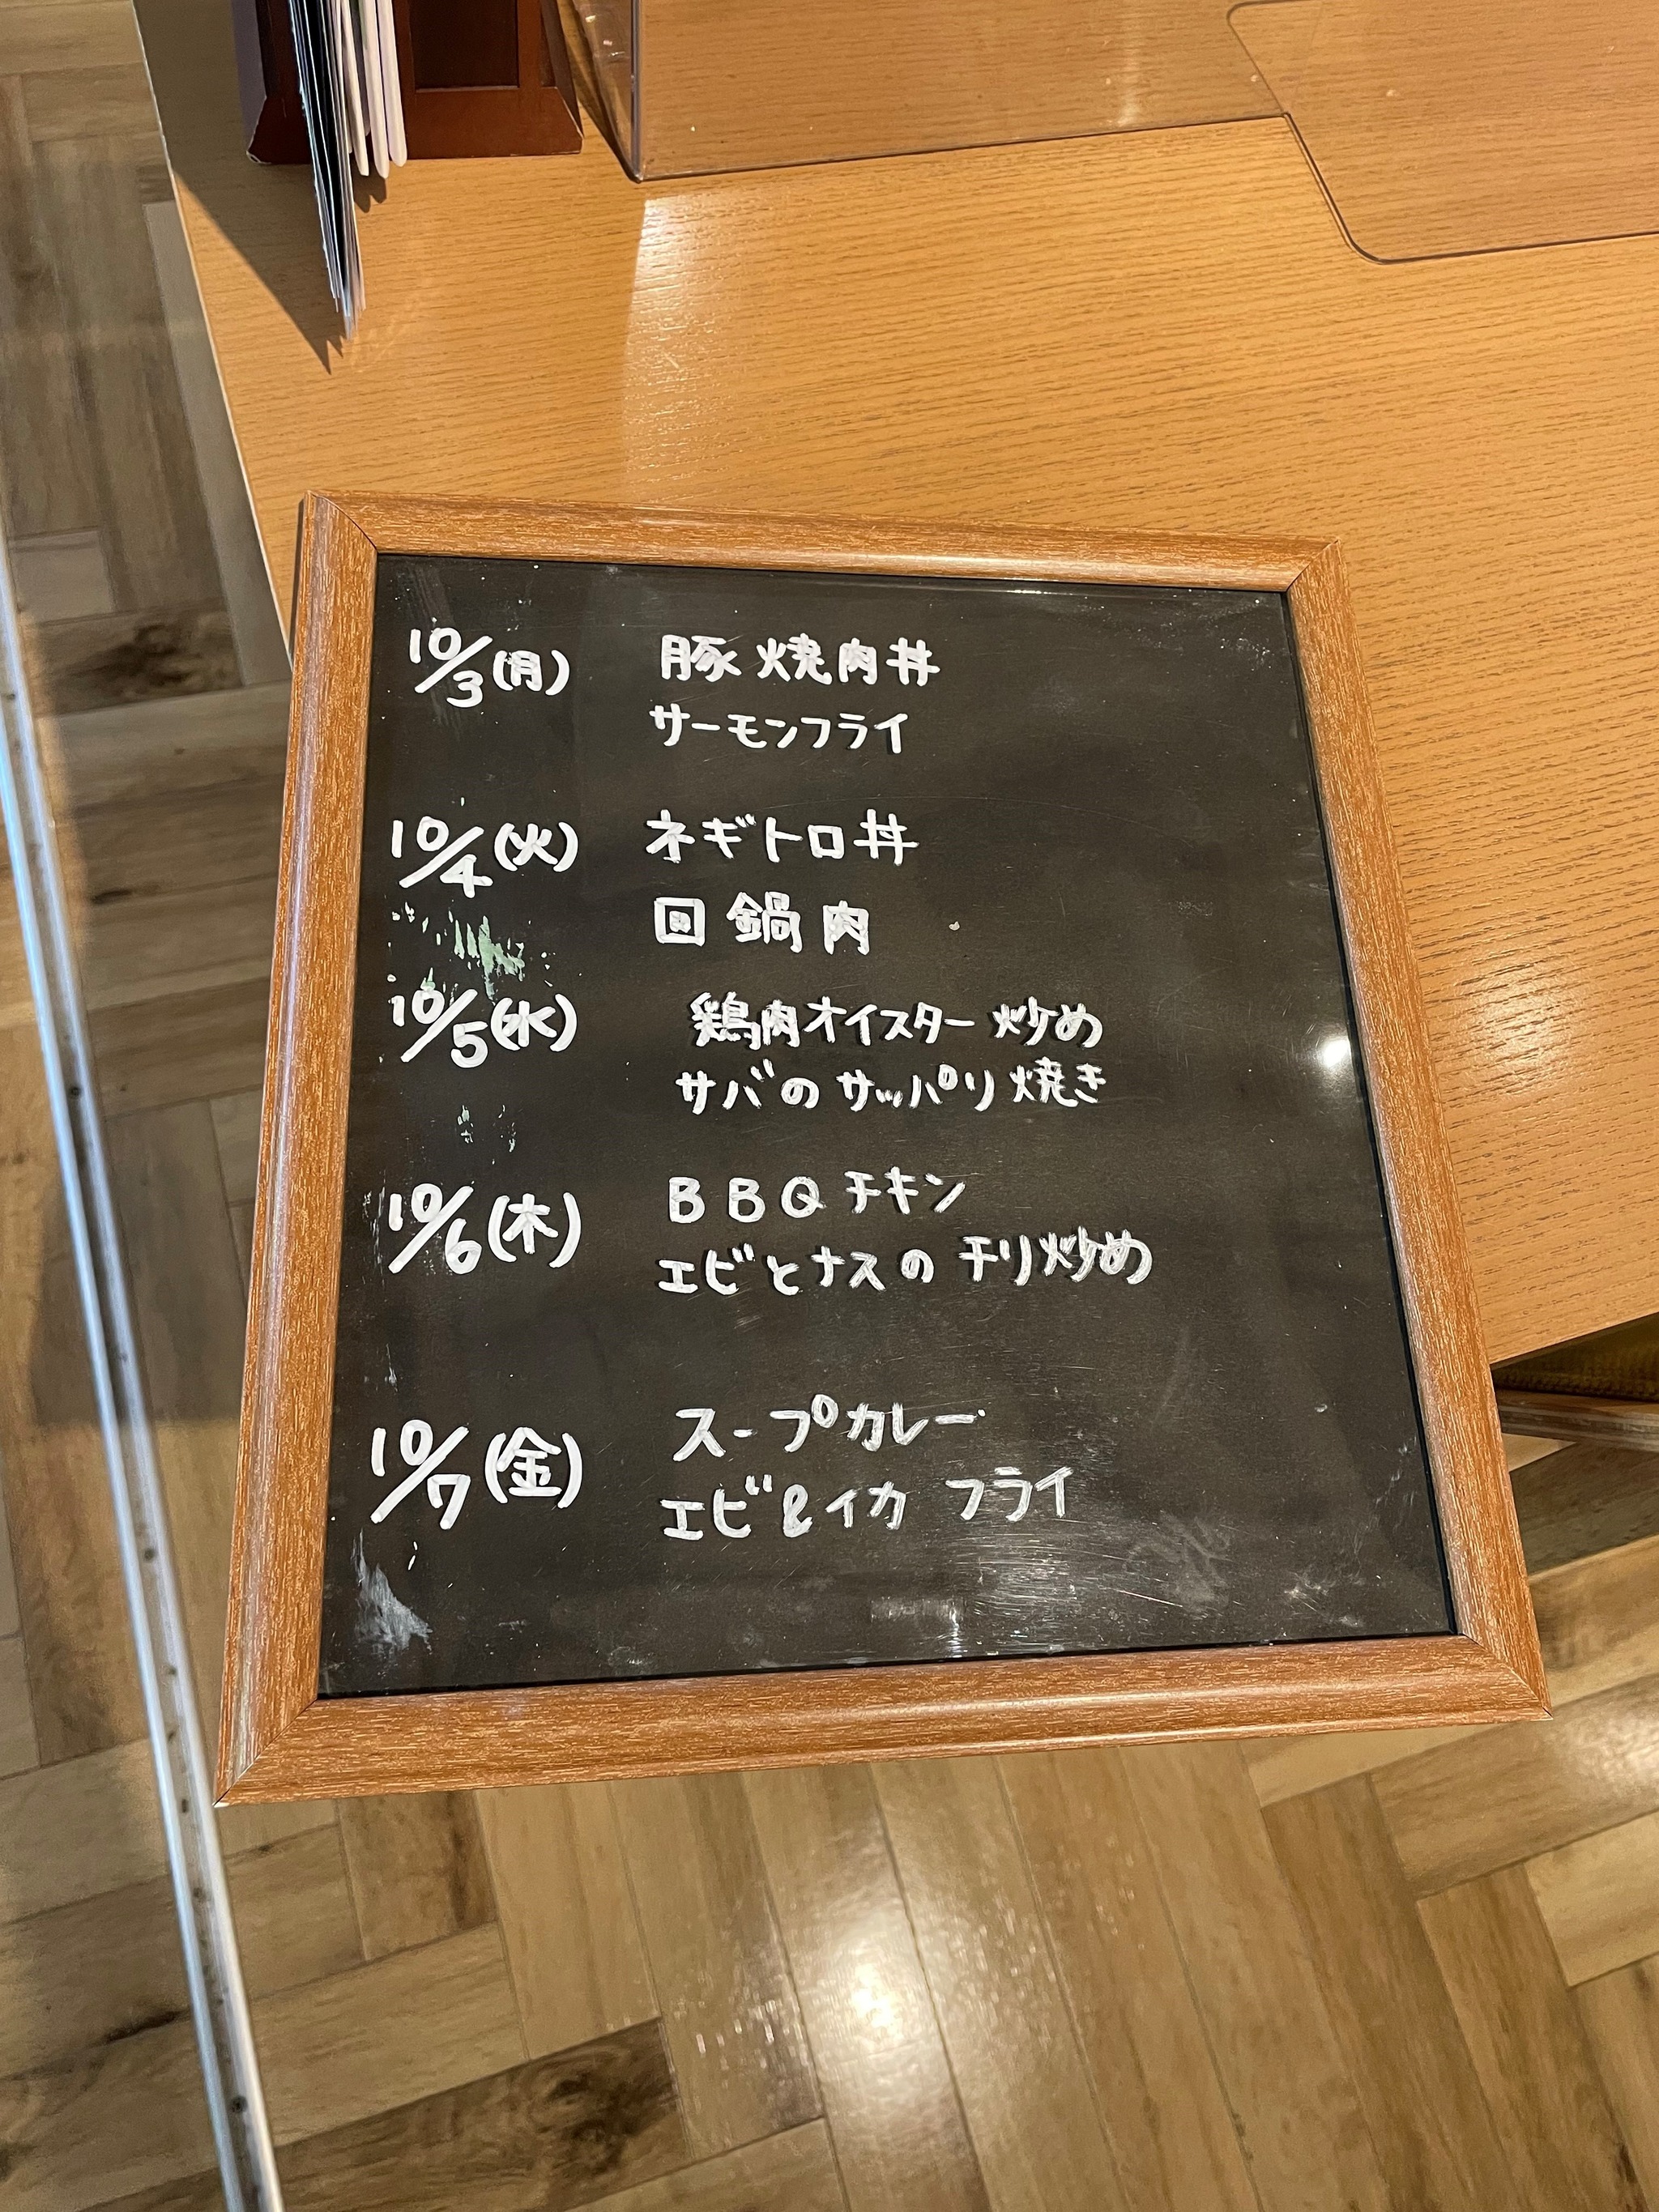 10/3(月) 豚焼肉丼
サーモンフライ
10/4(火) ネギトロ丼
回鍋肉
10/5(水) 鶏肉オイスター炒め
サバのサッパリ焼き
10/6(木) BBQチキン
エビとナスのチリ炒め
10/7(金) スープカレー
エビ&イカフライ